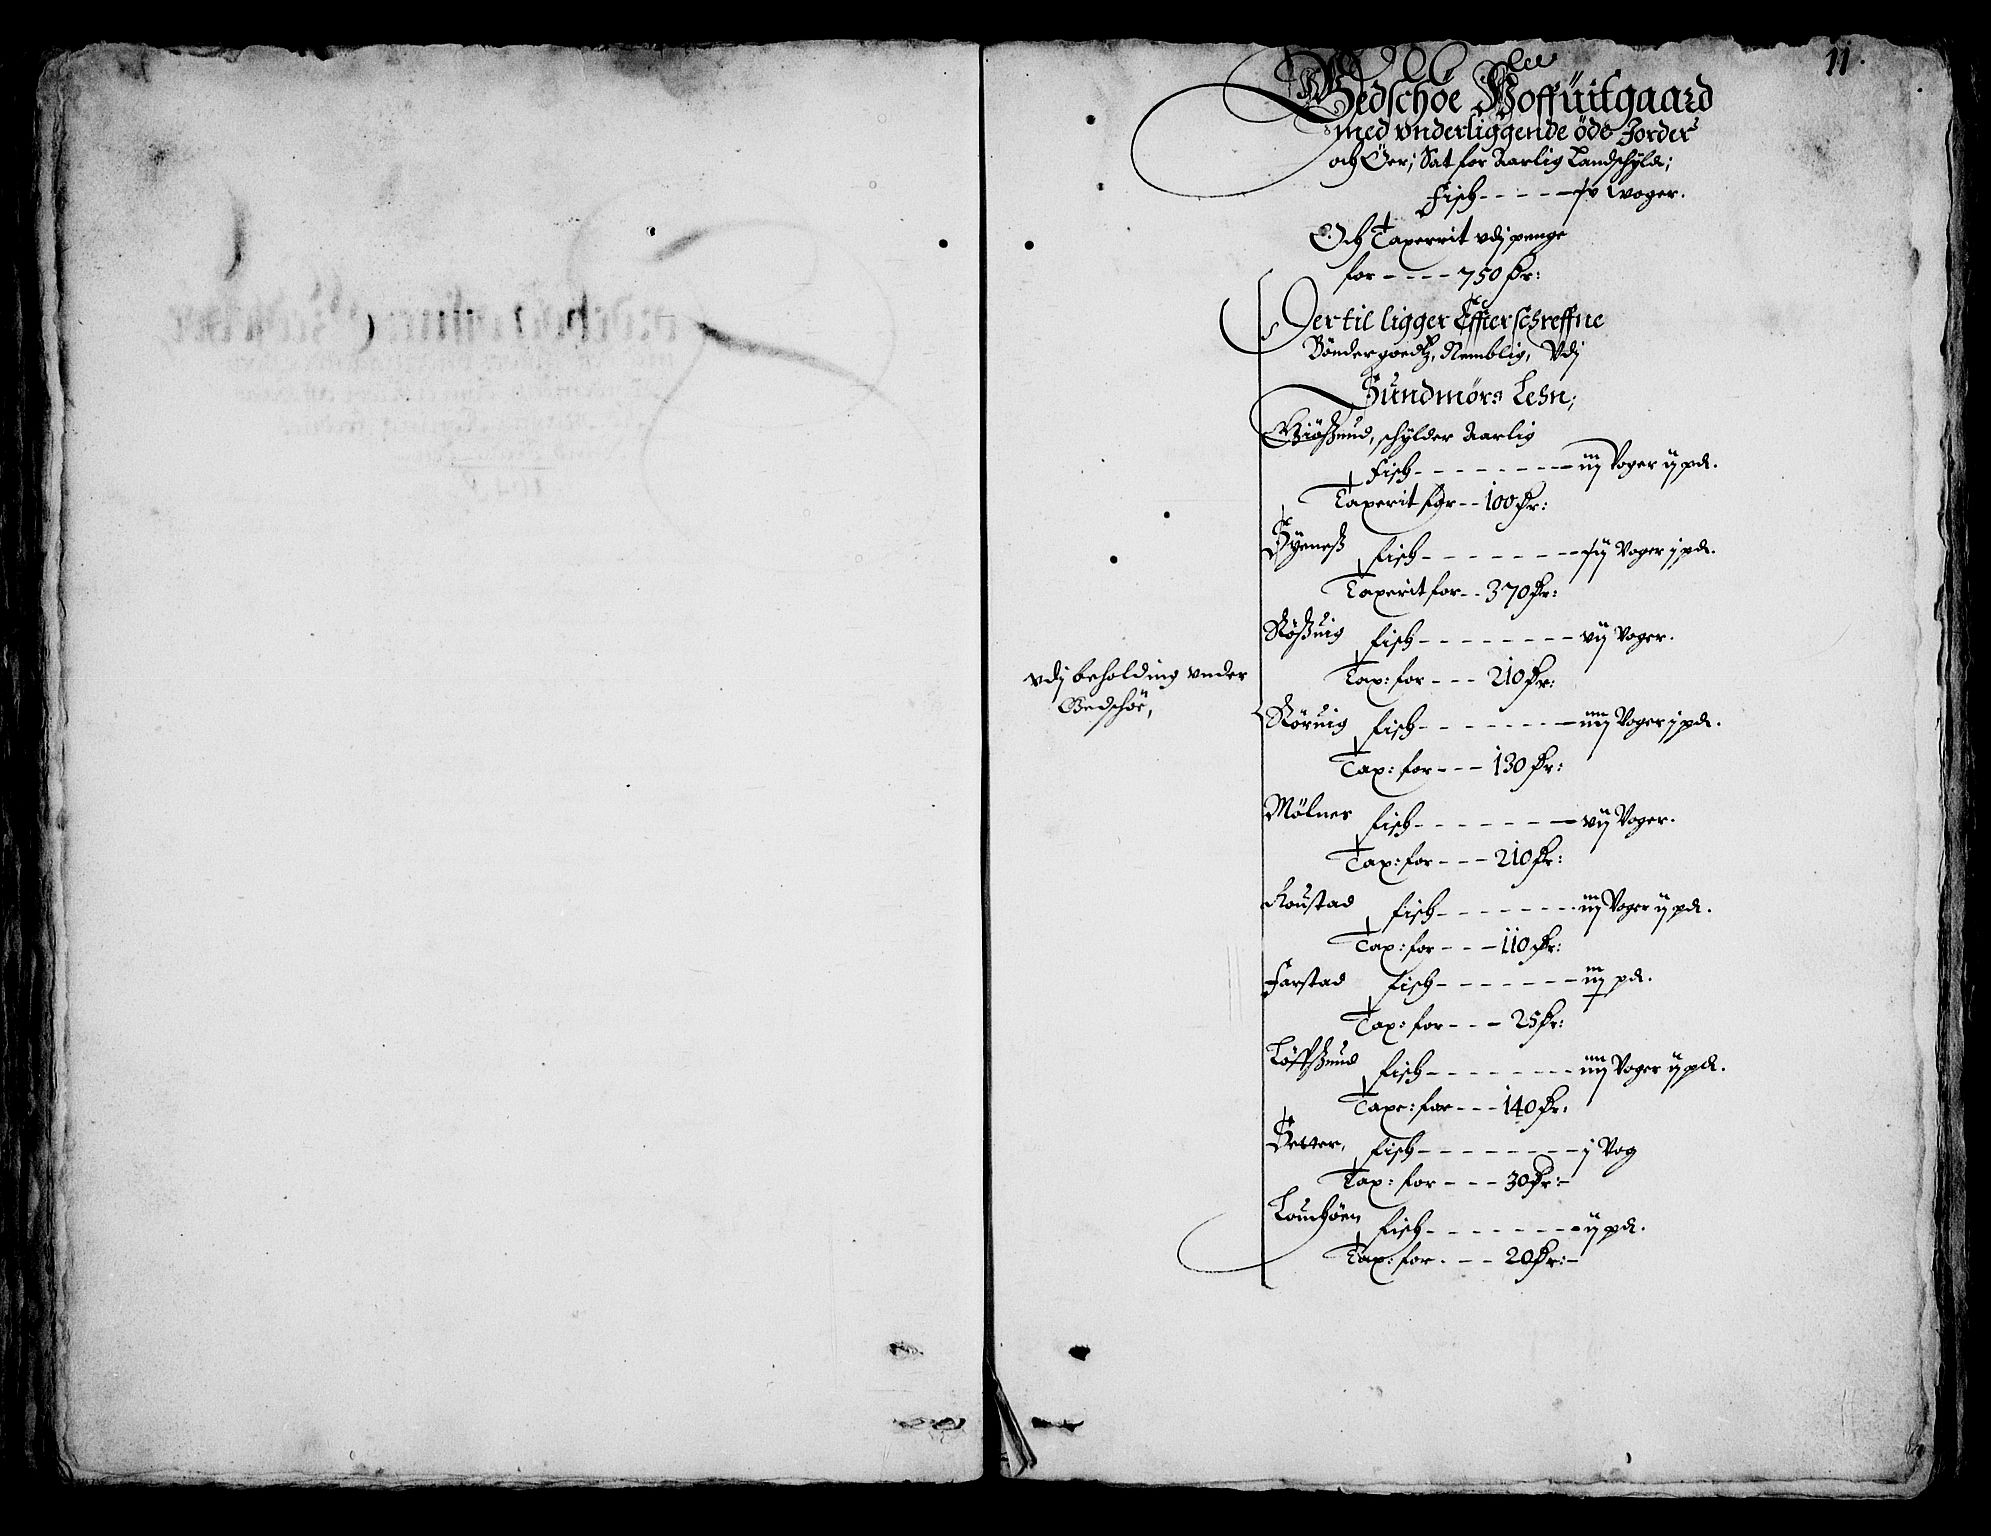 11.
Gedschøe Hoffuitgaard
med vnderliggende øde Jorder
och Øer; Sat for Aarlig Landschyld;
Fisch - - - - - xv woger.
Och Taxerrit vdj penge
for - - - - 750 dr:
Dertil ligger Effterschreffne
Bøndergoedtz, Nemblig, Vdj
Sundmørs Lehn;
schylder Aarlig
Fisch - - - - - - - - iiij Voger ij pd.
Taxerit for - - 100 dr:
fisch - - - - - - - - Voger j pd.
Taxerit for - - 370 dr:
Røßuig fisch - - - - - - - - vij Voger.
Tax: for - - - 210 dr:
vdj beholding vnder
Gedschøe,
Røruig fisch - - - - - - - - iiij Voger j pd.
Tax: for - - - 130 dr:
Mølnes fisch - - - - - - - - vij Voger.
Tax: for - - - 210 dr:
Roustad fisch - - - - - - - - iij Voger ij pd.
Tax: for - - - 110 dr:
Farstad fisch - - - - - - - - pd.
Tax: for - - - 25 dr:
Løffßund fisch - - - - - - - - iiij Voger ij pd.
Taxe: for - - - 140 dr:
Setter, fisch - - - - - - - - j Vog
Tax: for - - - 30 dr: -
fisch - - - - - - - - ij pd.
Tax: for - - - 20 dr: -